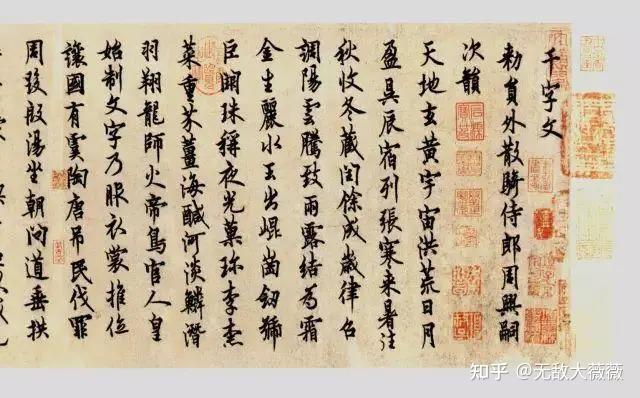 千字文
勑員外散騎侍郎周興嗣
次韻
天地玄黄宇宙洪荒日月
盈昃辰宿列張寒来暑往
秋收冬藏閏餘成歲律召
調陽雲騰致雨露結為霜
金生麗水玉出崐崗劒號
巨闕珠稱夜光菓珎李柰
菜重芥薑海醎河淡鱗潛
羽翔龍師火帝鳥官人皇
始制文字乃服衣裳推位
讓國有虞陶唐吊民伐罪
周發殷湯坐朝問道垂拱
知乎 @无敌大薇薇